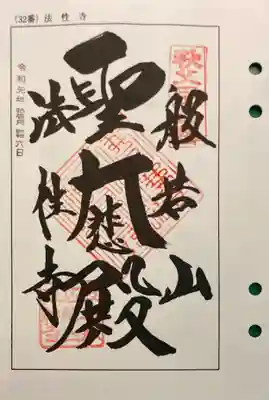 (32番) 法性寺
般若山
聖大悲殿
法性寺
令和元年 月 六日